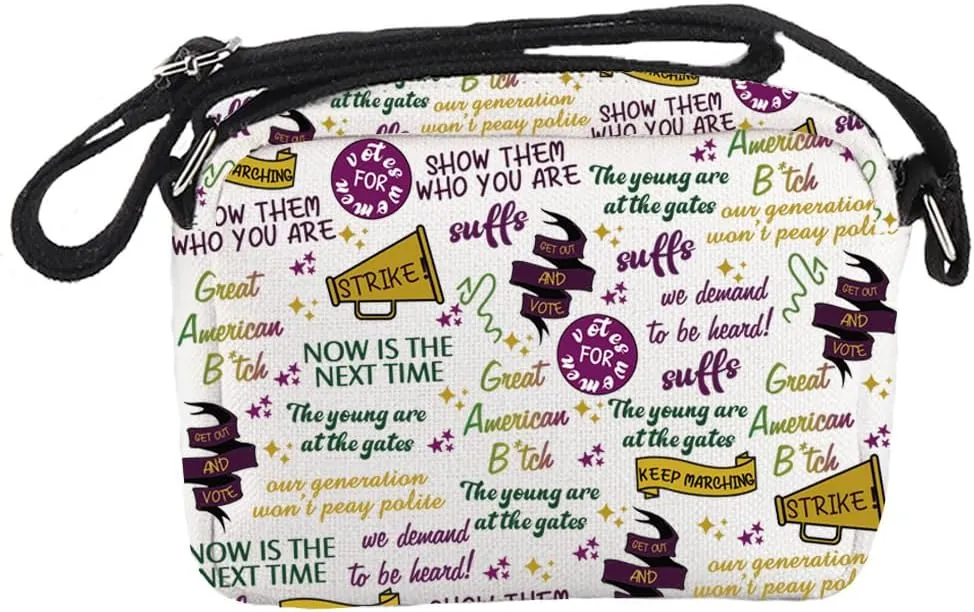 B*tch
MARCHING
at the gates
our generation
won't peay polite
suffs
SHOW THEM
WHO YOU ARE
GET OUT
MARCHING
votes
FOR
women
SHOW THEM
WHO YOU ARE
The young are
at the gates
American
B*tch
our generation
won't peay polite
OW THEM
WHO YOU ARE
suffs
GET OUT
AND
VOTE
suffs
Great
American
B*tch
STRIKE!
we demand
to be heard!
GET OUT
AND
VOTE
NOW IS THE
NEXT TIME
votes
FOR
women
Great
American
B*tch
suffs
Great
American
B*tch
The young are
at the gates
The young are
at the gates
GET OUT
AND
VOTE
KEEP MARCHING
our generation
won't peay polite
The young are
at the gates
STRIKE!
NOW IS THE
NEXT TIME
we demand
to be heard!
GET OUT
AND
our generation
won't peay pol
SHOW THEM